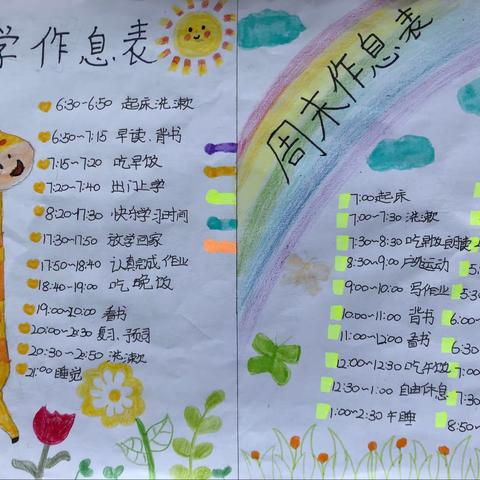 学作息表
6:30~6:50 起床洗漱
6:50~7:15 早读、背书
7:15~7:20 吃早饭
7:20~7:40 出门上学
8:20~17:30 快乐学习时间
17:30~17:50 放学回家
17:50~18:40 认真完成作业
18:40~19:00 吃晚饭
19:00~20:00 看书
20:00~20:30 复习、预习
20:30~20:50 洗漱
21:00 睡觉
周末作息表
7:00 起床
7:00~7:30 洗漱
7:30~8:30 吃早饭朗读
8:30~9:00 户外运动
9:00~10:00 写作业
10:00~11:00 背书
11:00~12:00 看书
12:00~12:30 吃午饭
12:30~1:00 自由休息
1:00~2:30 午睡
5:30
6:00~
6:30
7:00
7:30
8:50~